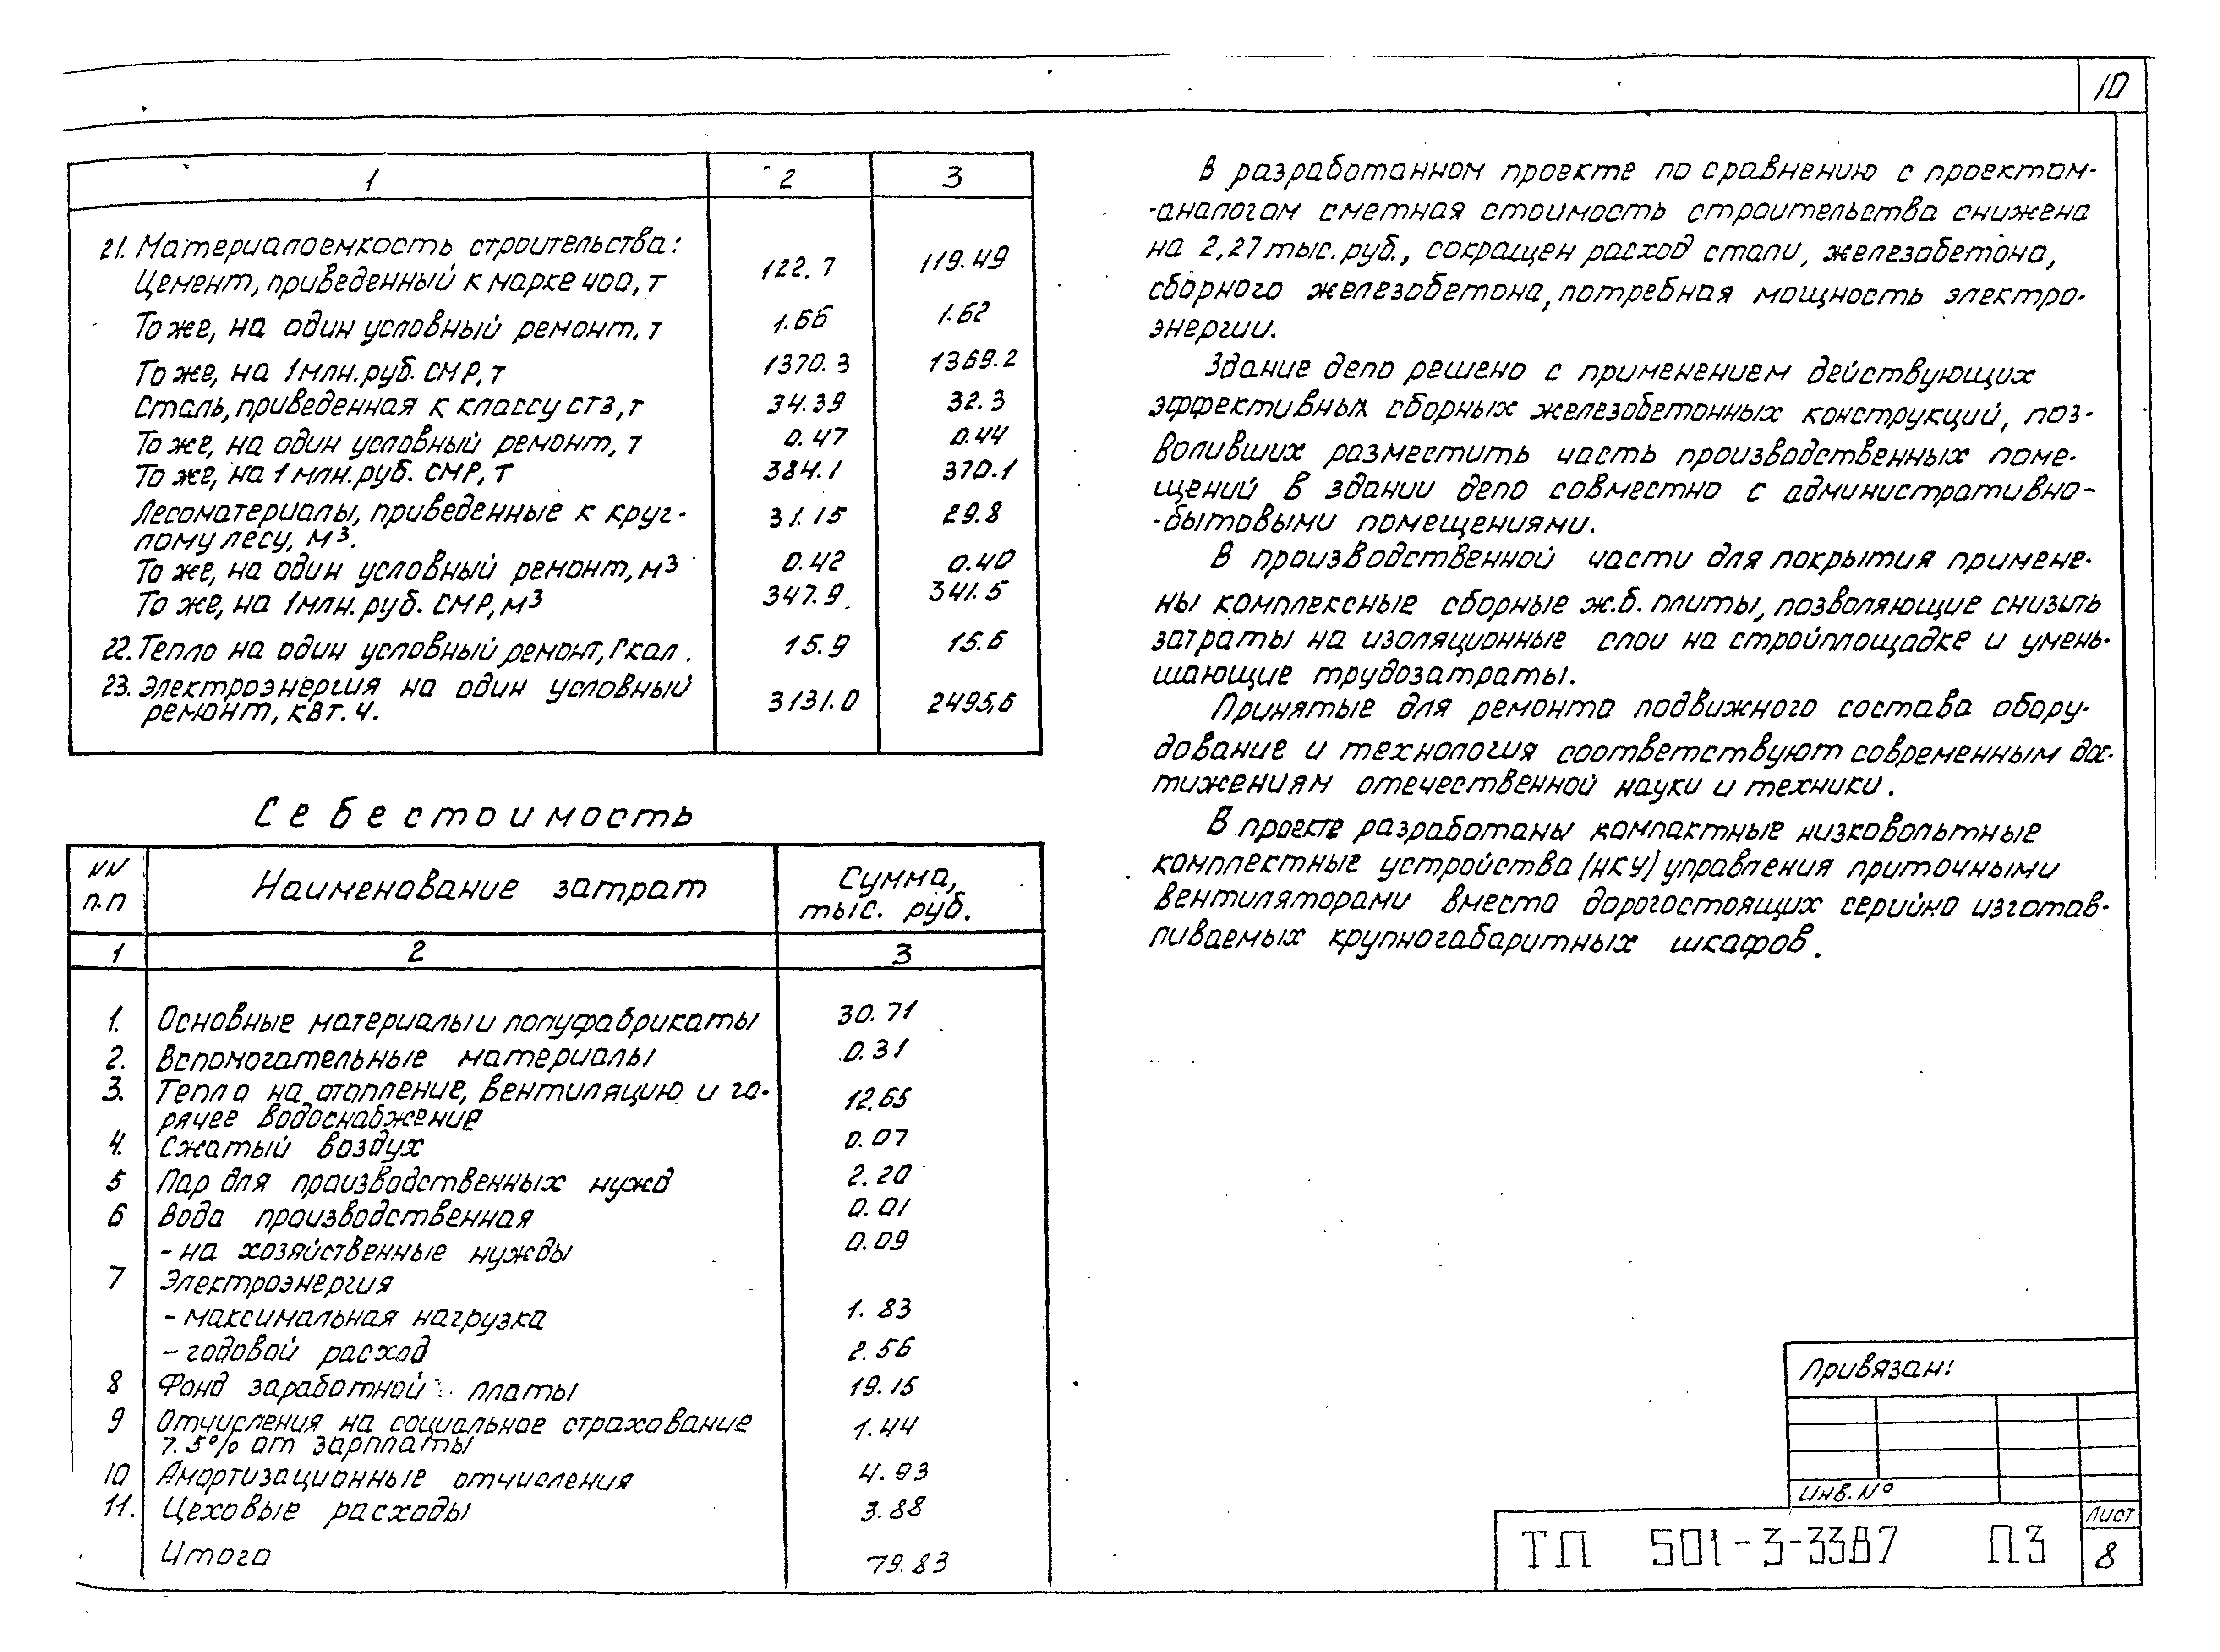 10
1 2 3
21. Материалоемкость строительства:
Цемент, приведенный к марке 400, т 122.7 119.49
То же, на один условный ремонт, т 1.66 1.62
То же, на 1 млн. руб. СМР, т 1370.3 1369.2
Сталь, приведенная к классу ст3, т 34.39 32.3
То же, на один условный ремонт, т 0.47 0.44
То же, на 1 млн. руб. СМР, т 384.1 370.1
Лесоматериалы, приведенные к круг- 31.15 29.8
лому лесу, м3.
То же, на один условный ремонт, м3 0.42 0.40
То же, на 1 млн. руб. СМР, м3 347.9 341.5
22. Тепло на один условный ремонт, Гкал. 15.9 15.6
23. Электроэнергия на один условный 3131.0 2495,6
ремонт, квт. ч.
Себестоимость
NN п.п Наименование затрат Сумма, тыс. руб.
1 2 3
1. Основные материалы и полуфабрикаты 30.71
2. Вспомогательные материалы 0.31
3. Тепло на отопление, вентиляцию и го- 12.65
рячее водоснабжение
4. Сжатый воздух 0.07
5 Пар для производственных нужд 2.20
6 Вода производственная 0.01
- на хозяйственные нужды 0.09
7 Электроэнергия
- максимальная нагрузка 1.83
- годовой расход 2.56
8 Фонд заработной платы 19.15
9 Отчисления на социальное страхование 1.44
7.5% от зарплаты
10 Амортизационные отчисления 4.93
11. Цеховые расходы 3.88
Итого 79.83
В разработанном проекте по сравнению с проектом-
-аналогом сметная стоимость строительства снижена
на 2,27 тыс. руб., сокращен расход стали, железобетона,
сборного железобетона, потребная мощность электро-
энергии.
Здание депо решено с применением действующих
эффективных сборных железобетонных конструкций, поз-
воливших разместить часть производственных поме-
щений в здании депо совместно с административно-
-бытовыми помещениями.
В производственной части для покрытия примене-
ны комплексные сборные ж.б. плиты, позволяющие снизить
затраты на изоляционные слои на стройплощадке и умень-
шающие трудозатраты.
Принятые для ремонта подвижного состава обору-
дование и технология соответствуют современным дос-
тижениям отечественной науки и техники.
В проекте разработаны компактные низковольтные
комплектные устройства (НКУ) управления приточными
вентиляторами вместо дорогостоящих серийно изготав-
ливаемых крупногабаритных шкафов.
Привязан:
Инв. №
ТП 501-3-33.87 ПЗ
Лист
8